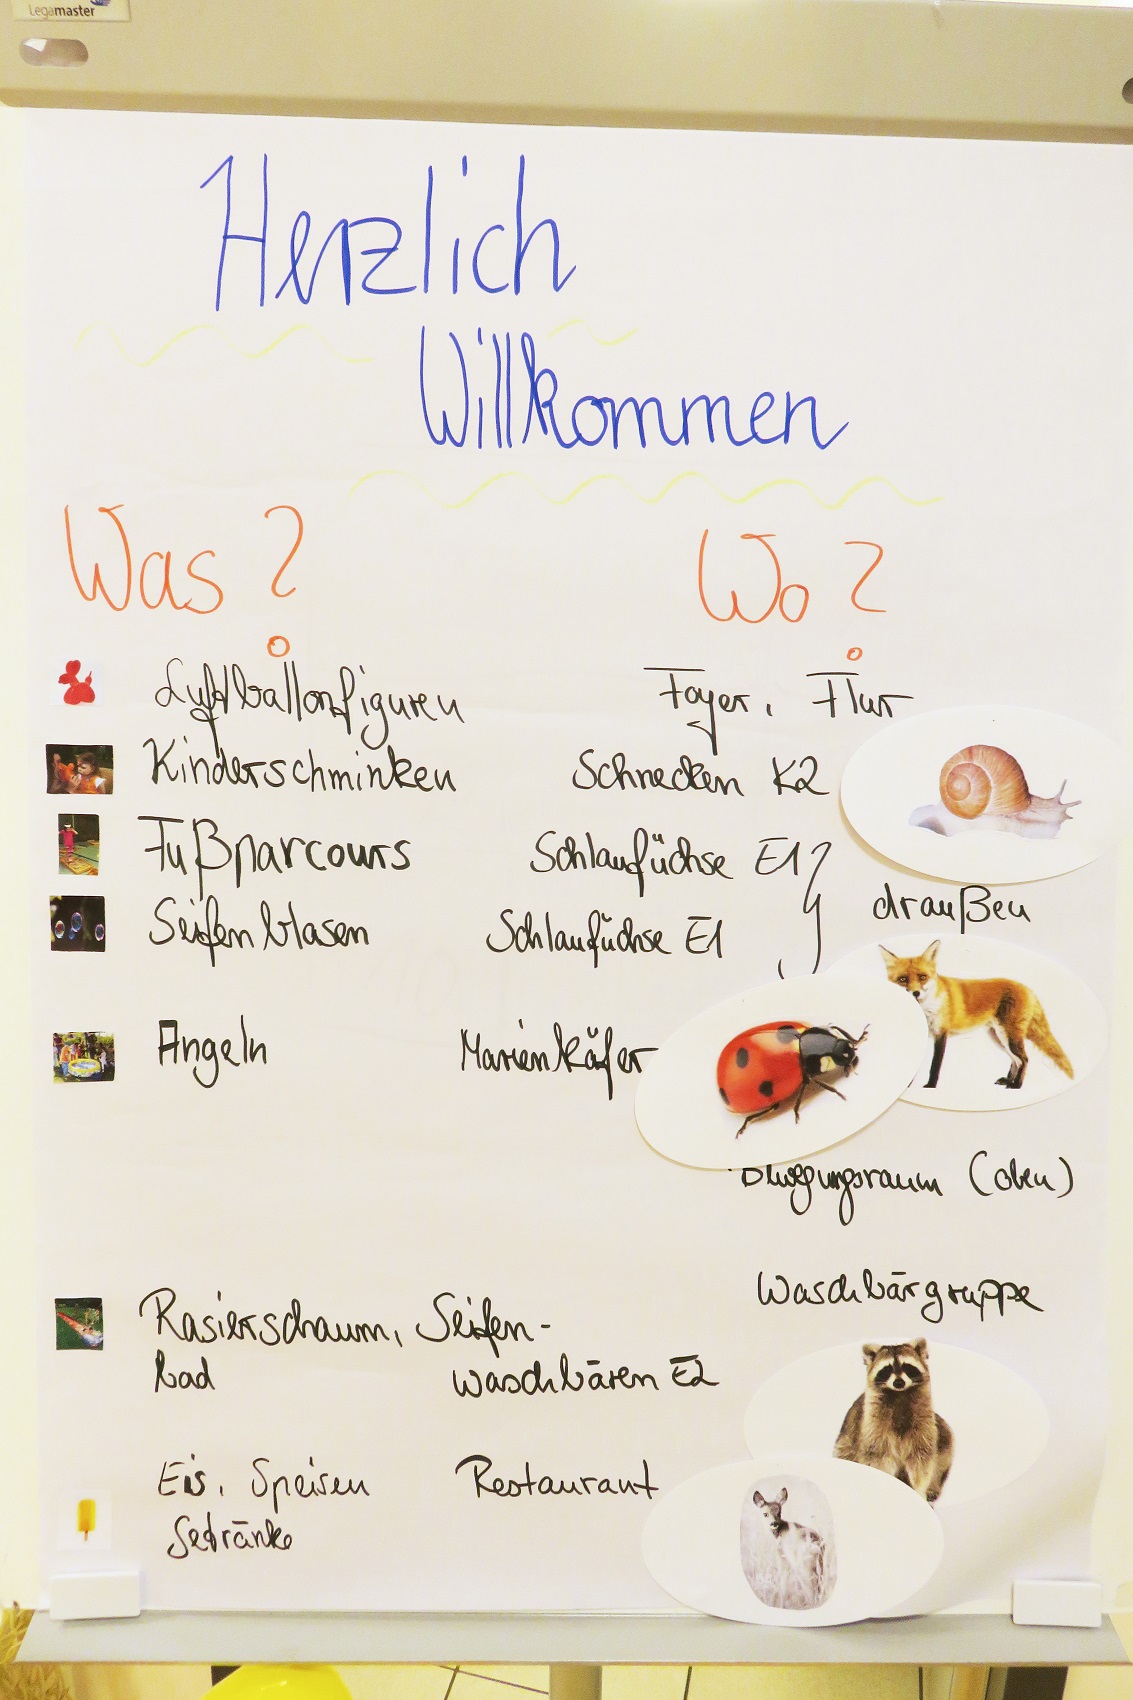 Legamaster
Herzlich
Willkommen
Was? Wo?
Luftballonfiguren Foyer, Flur
Kinderschminken Schnecken K2
Fußparcours Schlaufüchse E1
draußen
Seifenblasen Schlaufüchse E1
Angeln Marienkäfer
Bewegungsraum (oben)
Waschbärgruppe
Rasierschaum, Seifen-
bad Waschbären E2
Eis, Speisen Restaurant
Getränke